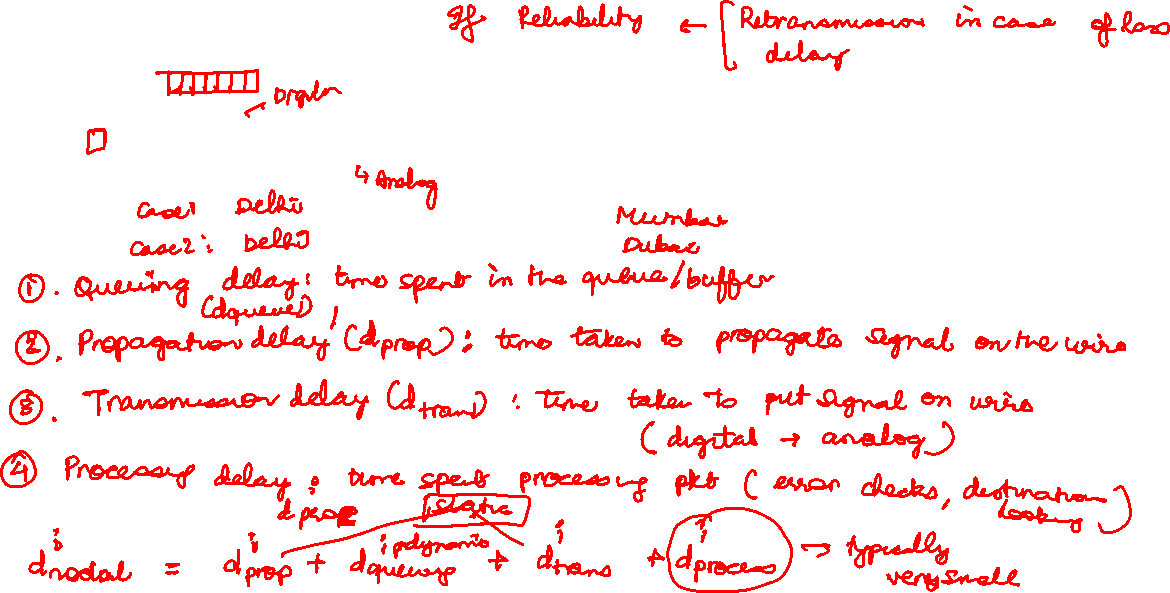 If Reliability ← [Retransmission in case of loss
delay
Digital
↳ Analog
Case1 Delhi Mumbai
Case2: Delhi Dubai
①. Queuing delay: time spent in the queue/buffer
(dqueue)
②. Propagation delay (dprop): time taken to propagate signal on the wire
③. Transmission delay (dtrans): time taken to put signal on wire
(digital → analog)
④ Processing delay: time spent processing pkt (error checks, destination
looking)
dproc static
dynamic
dnodal = dprop + dqueuing + dtrans + dprocess → typically
very small